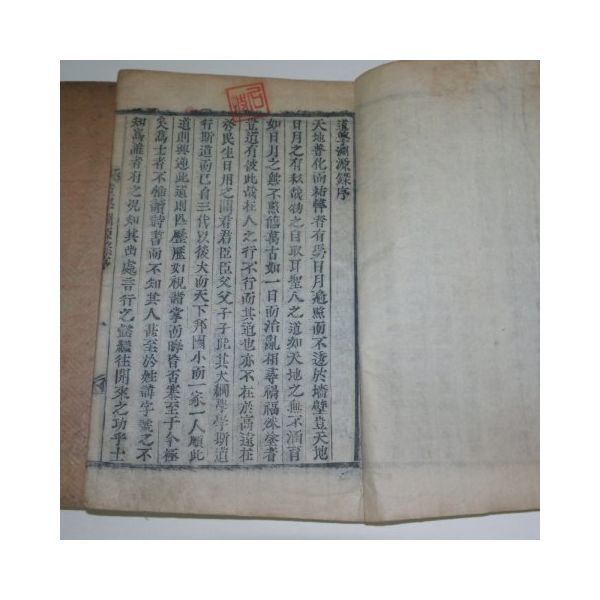 道學淵源錄序
天地普化而枯悴者有焉日月遍照而不透於墻壁豈天地
日月之有私哉物之自取耳聖人之道如天地之無不涵育
如日月之無不照臨萬古如一日而治亂相尋禍福殊塗者
豈道有彼此哉在人之行不行而其道也亦不在於高遠在
於民生日用之間君君臣臣父父子子此其大綱學學斯道
行斯道而已自三代以後大而天下邦國小而一家一人順此
道則興逆此道則亡歷歷如視諸掌而晦盲否塞至于今極
矣為士者不惟讀詩書而不知其人甚至於姓諱字號之不
知為誰者有之況知其出處言行之盛繼往開來之功乎士